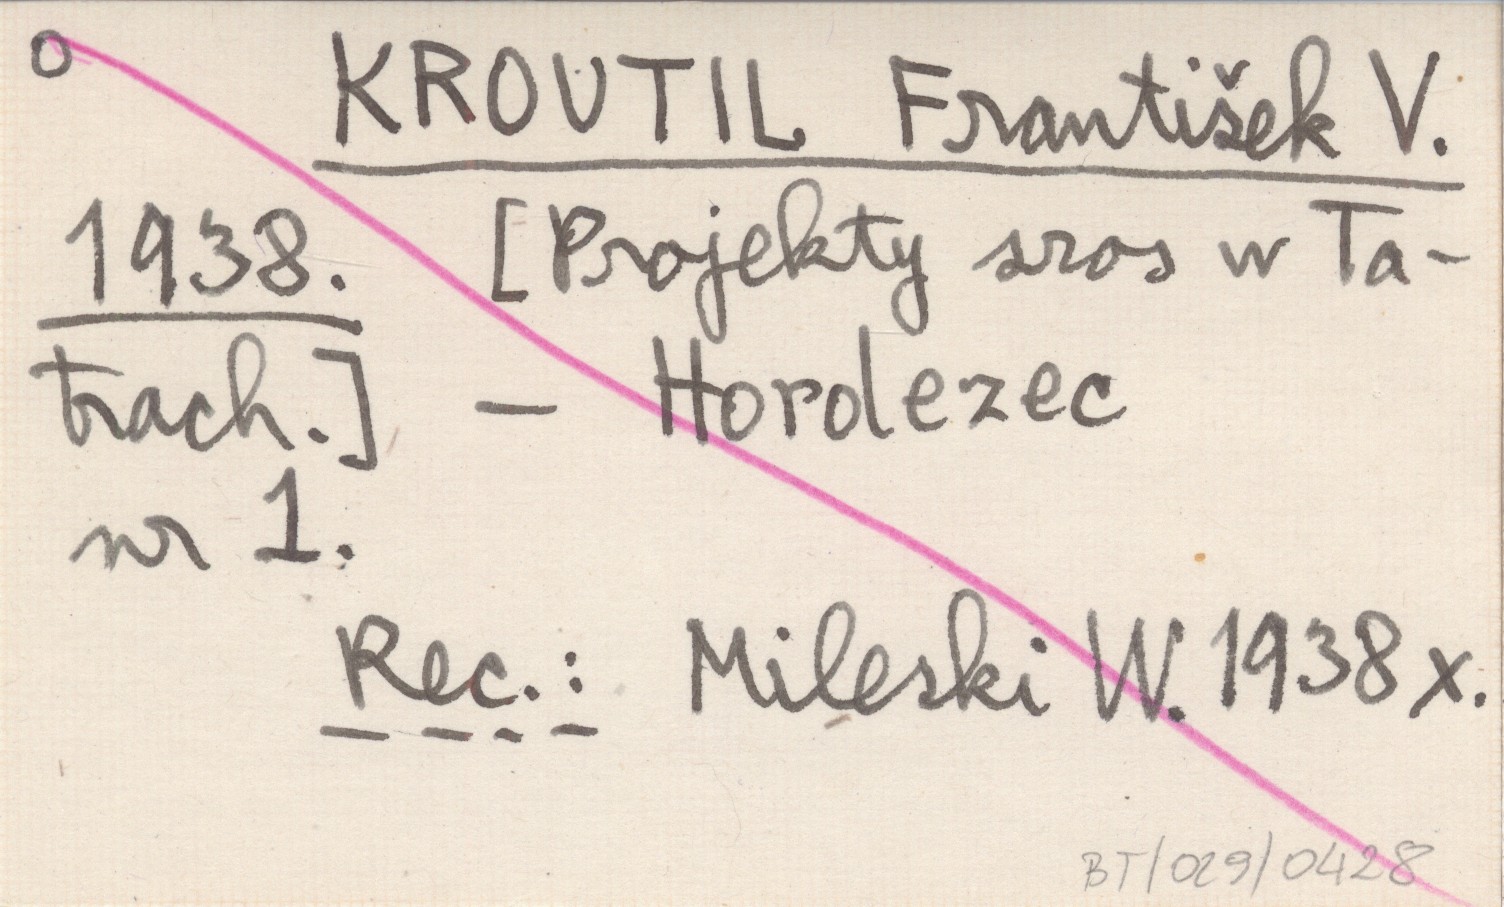 o KROUTIL František V.
1938. [Projekty szos w Ta-
trach.] — Horolezec
nr 1.
Rec.: Mileski W. 1938 x.
BT/029/0428